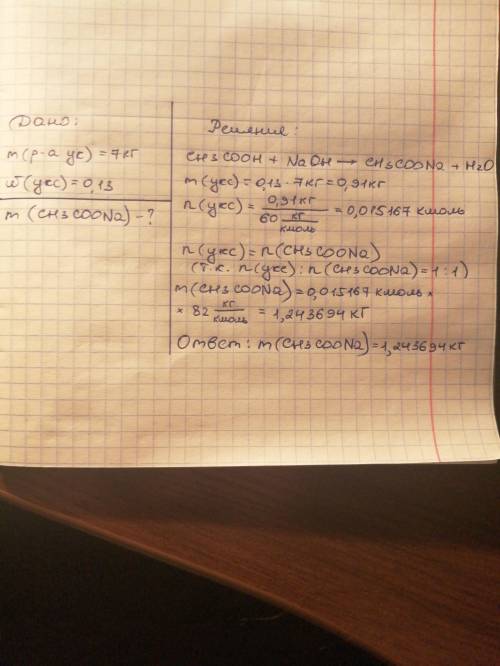 Дано:
m(р-а ук) = 7кг
ω(укс) = 0,13
m (CH3COONa) - ?
Решение:
CH3COOH + NaOH → CH3COONa + H2O
m(укс) = 0,13 · 7кг = 0,91кг
n(укс) = 0,91кг / 60 кг/кмоль = 0,015167 кмоль
n(укс) = n(CH3COONa)
(т.к. n(укс) : n(CH3COONa) = 1 : 1)
m(CH3COONa) = 0,015167 кмоль ×
× 82 кг/кмоль = 1,243694 кг
Ответ: m(CH3COONa) = 1,243694 кг